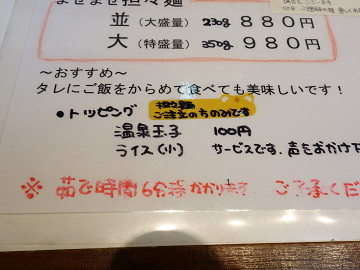 まぜまぜ担々麺
並(大盛量) 230g 880円
大(特盛量) 350g 980円
〜おすすめ〜
タレにご飯をからめて食べても美味しいです！
• トッピング 担々麺
ご注文の方のみです
温泉玉子 100円
ライス(小) サービスです。声をおかけ下
※ 茹で時間6分待かかります ご了承くだ